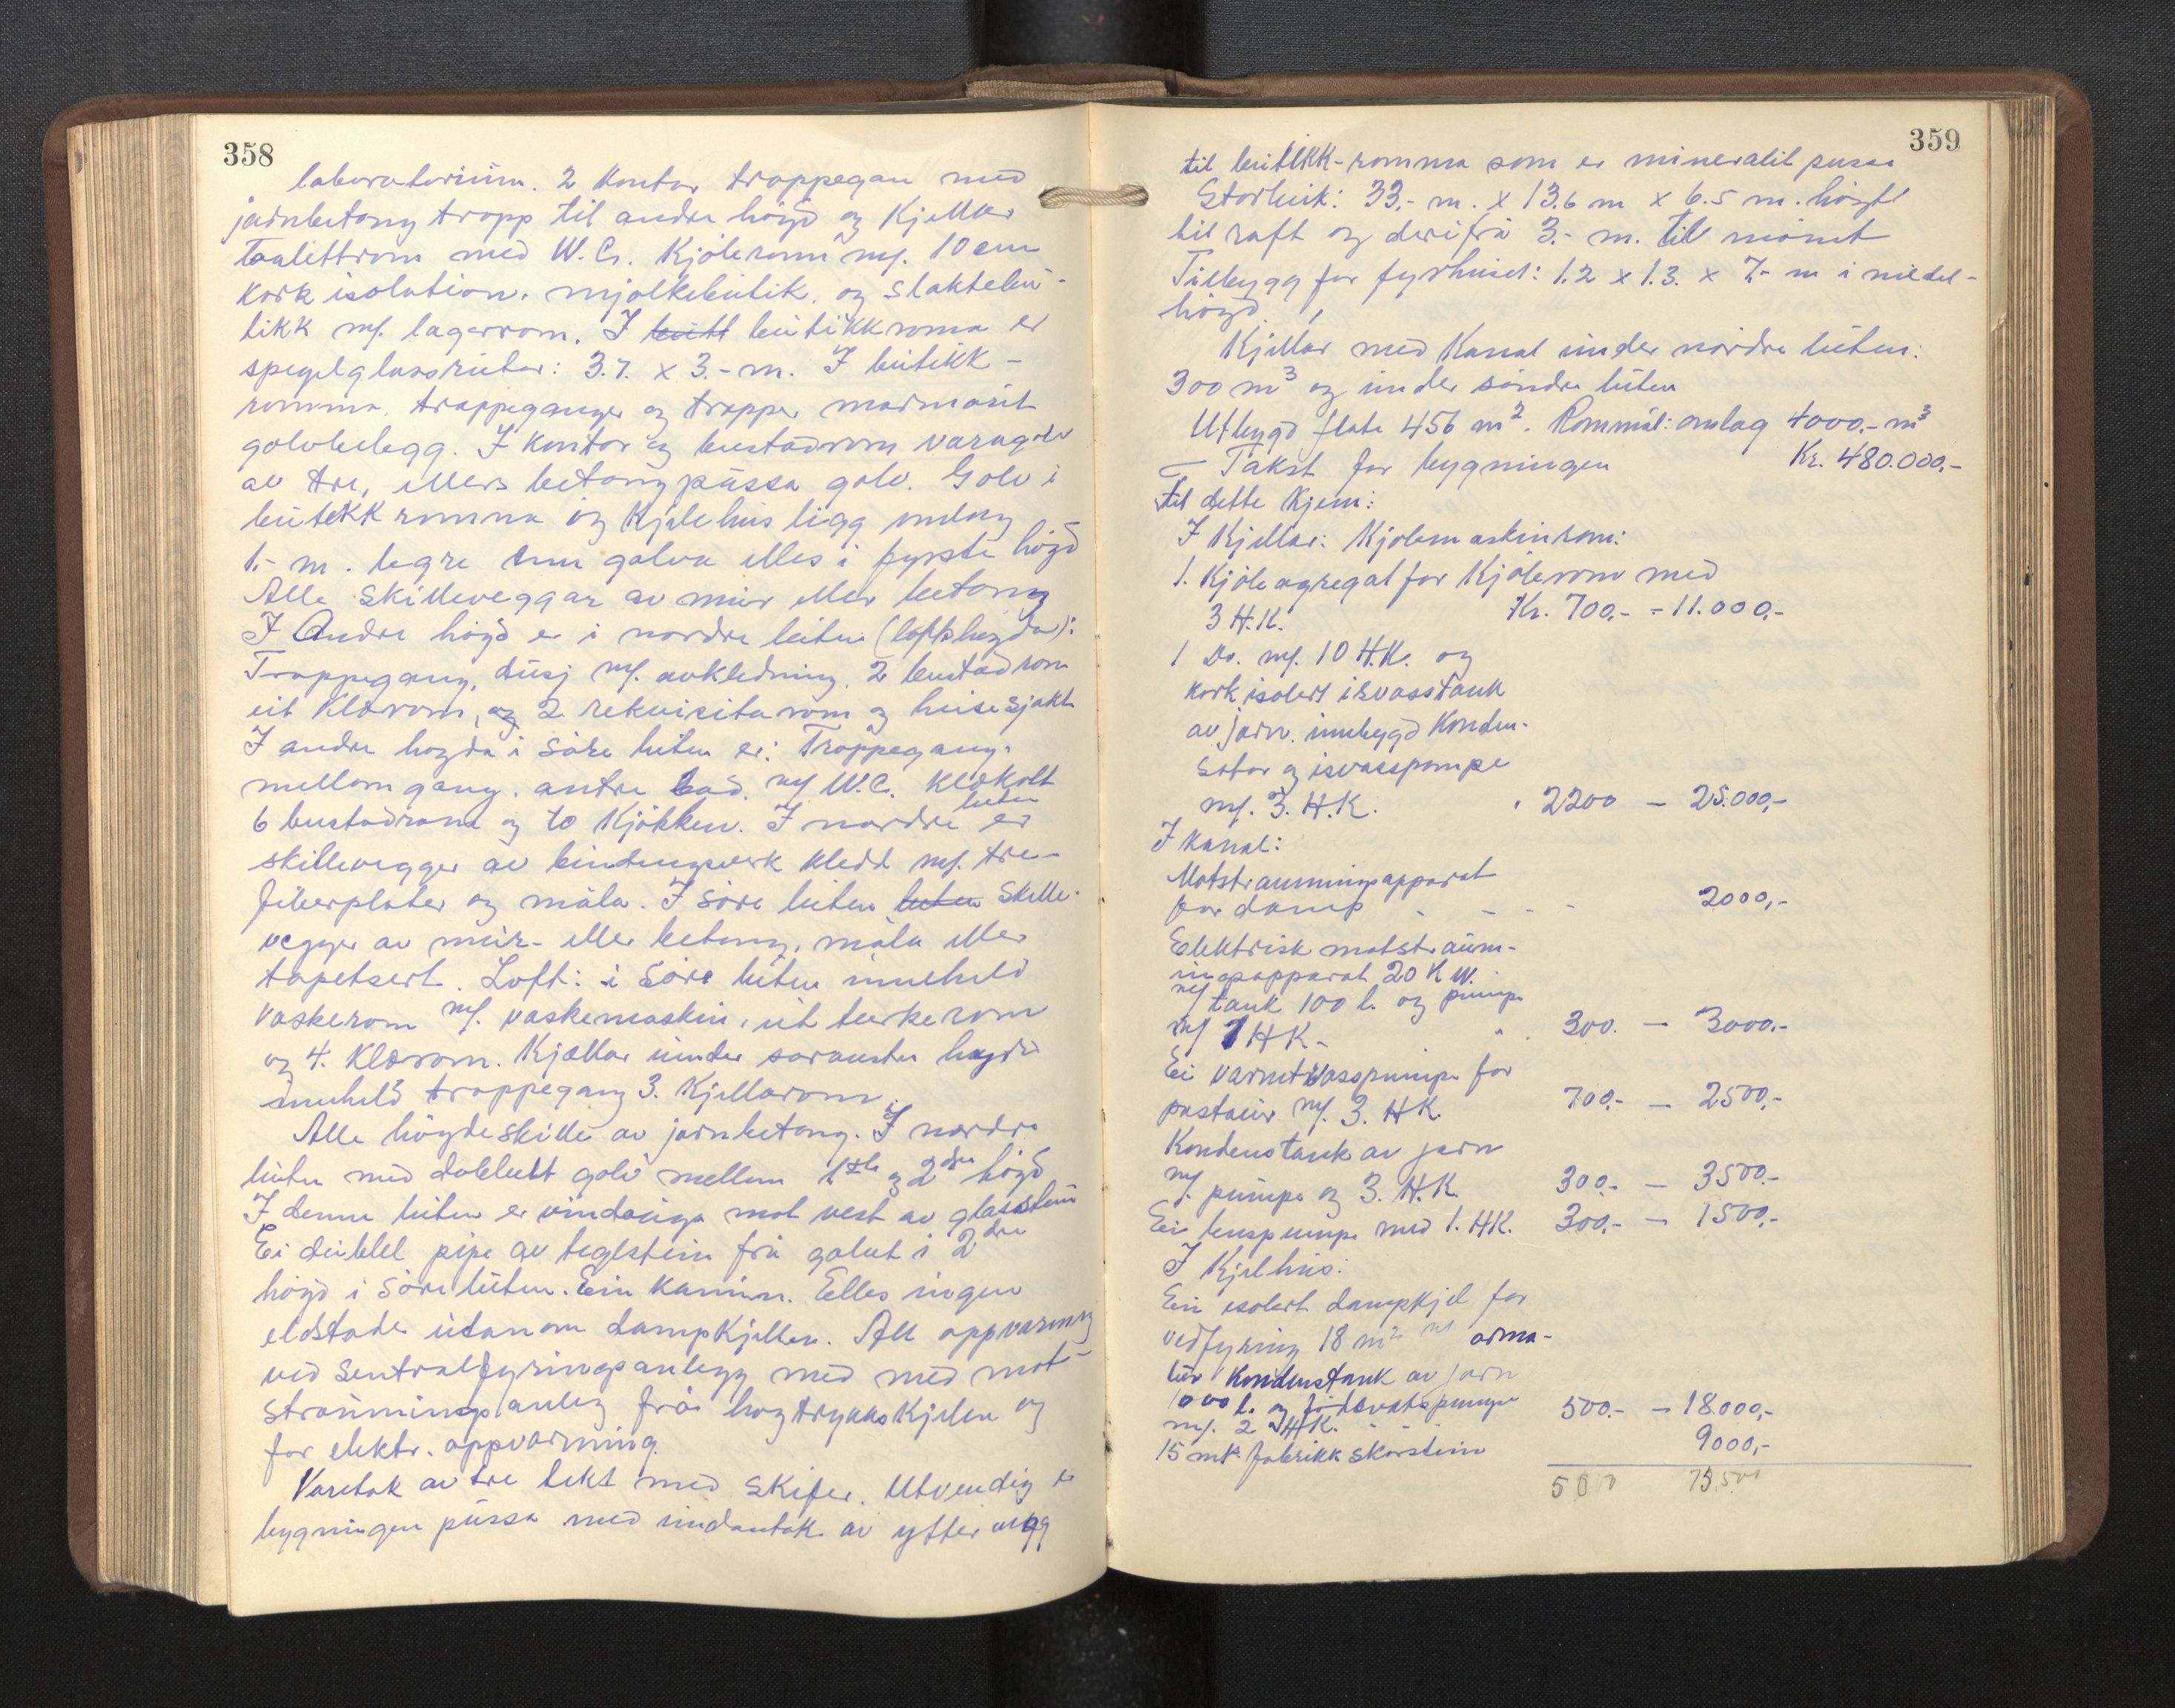 358
laboratorium. 2 Kontor trappegan med
jarnbetong trapp til andre høgd og Kjellar
Toalettrom med W.C. Kjølerom m/. 10 cm
Kork isolation. mjølkebutik. og slaktebu-
tikk m/. lagerrom. I butt butikkroma er
spegelglassruter: 3.7. x 3.- m. I butikk-
romma. trappeganger og trapper marmorit
golvbelegg. I Kontor og bustadrom varagolv
av tre, ellers betong pussa golv. Golv i
butikk romma og Kjelehus ligg omlag
1.- m. legre enn golva elles i fyrste høgd
Alle skilleveggar av mur eller betong
I Andre høgd er i nordre luten (lofthøgda):
Trappegang, dusj m/. avkledning. 2 bustadrom
eit Klorom, og 2 rekvisita rom og heisesjakt
I andre høgda i søre luten er: Trappegang.
mellomgang. antre bad. m/ W.C. Klokott
6 bustadrom og to Kjøkken. I nordre luten er
skillevegger av bindingsverk kledd m/. tre-
fiberplater og måla. I søre luten luten Skille-
vegger av mur- eller betong, måla eller
tapetsert. Loft: i søre luten inneheld
vaskerom m/. vaskemaskin, eit turkerom
og 4. Klorom. Kjellar under høgda
inneheld trappegang 3. Kjellarom.
Alle høgdeskille av jarnbetong. I nordre
luten med dobbelt golv mellom 1ste og 2dre høgd
I denne luten er vindauga mot vest av glasstein
Ei dubbel pipe av teglstein frå golvet i 2dre
høgd i Søre luten. Ein Kamin. Elles ingen
eldstade utanom dampkjellen. All oppvarming
ved Sentralfyringsanlegg med med mot-
straumings anleg frå høgtrykks Kjelen og
for elektr. oppvarming.
Varetak av tre tekt med skifer. Utvendig er
bygningen pussa med undantak av yttervegg
359
til butikk-romma som er mineralit pussa
Storleik: 33,- m. x 13.6 m x 6.5 m. høgde
til raft og derifrå 3.- m. til mønet
Tilbygg for fyrhuset: 1.2 x 1.3. x 7.- m i middel-
høgd.
Kjellar med Kanal under nordre luten:
300 m³ og under søndre luten
Utbygd flate 456 m². Rommål: omlag 4000.- m³
Takst for bygningen Kr. 480.000,-
til dette Kjem:
I Kjellar: Kjølemaskinrom:
1. Kjøleagregat for Kjølerom med
3 H.K. Kr. 700,- - 11.000,-
1 Do. m/. 10 H.K. og
kork isolert isvasstank
av jarn. innbygd Konden-
sator og isvasspumpe
m/. 3. H.K. " 2200 - 25.000,-
I Kanal:
Motstraumingsapparat
for damp - - - - 2000,-
Elektrisk motstraum-
ingsapparat 20 K W.
m/ tank 100 l. og pumpe
m/ 1 HK- " 300. - 3000.-
Ei varmtvasspumpe for
pastaur m/. 3. HK. 700,- - 2500,-
Kondenstank av jarn
m/. pumpe og 3. H.K. 300,- - 3500.-
Ei lensepumpe med 1. HK. 300,- - 1500,-
I Kjelhus:
Ein isolert dampkjel for
vedfyring 18 m² m/ arma-
tur Kondenstank av jarn
1000 l. og fødevatspumpe
m/. 2 HK. - - 500.- - 18.000,-
15 mt. fabrikk skorstein 9000,-
5000 75,500